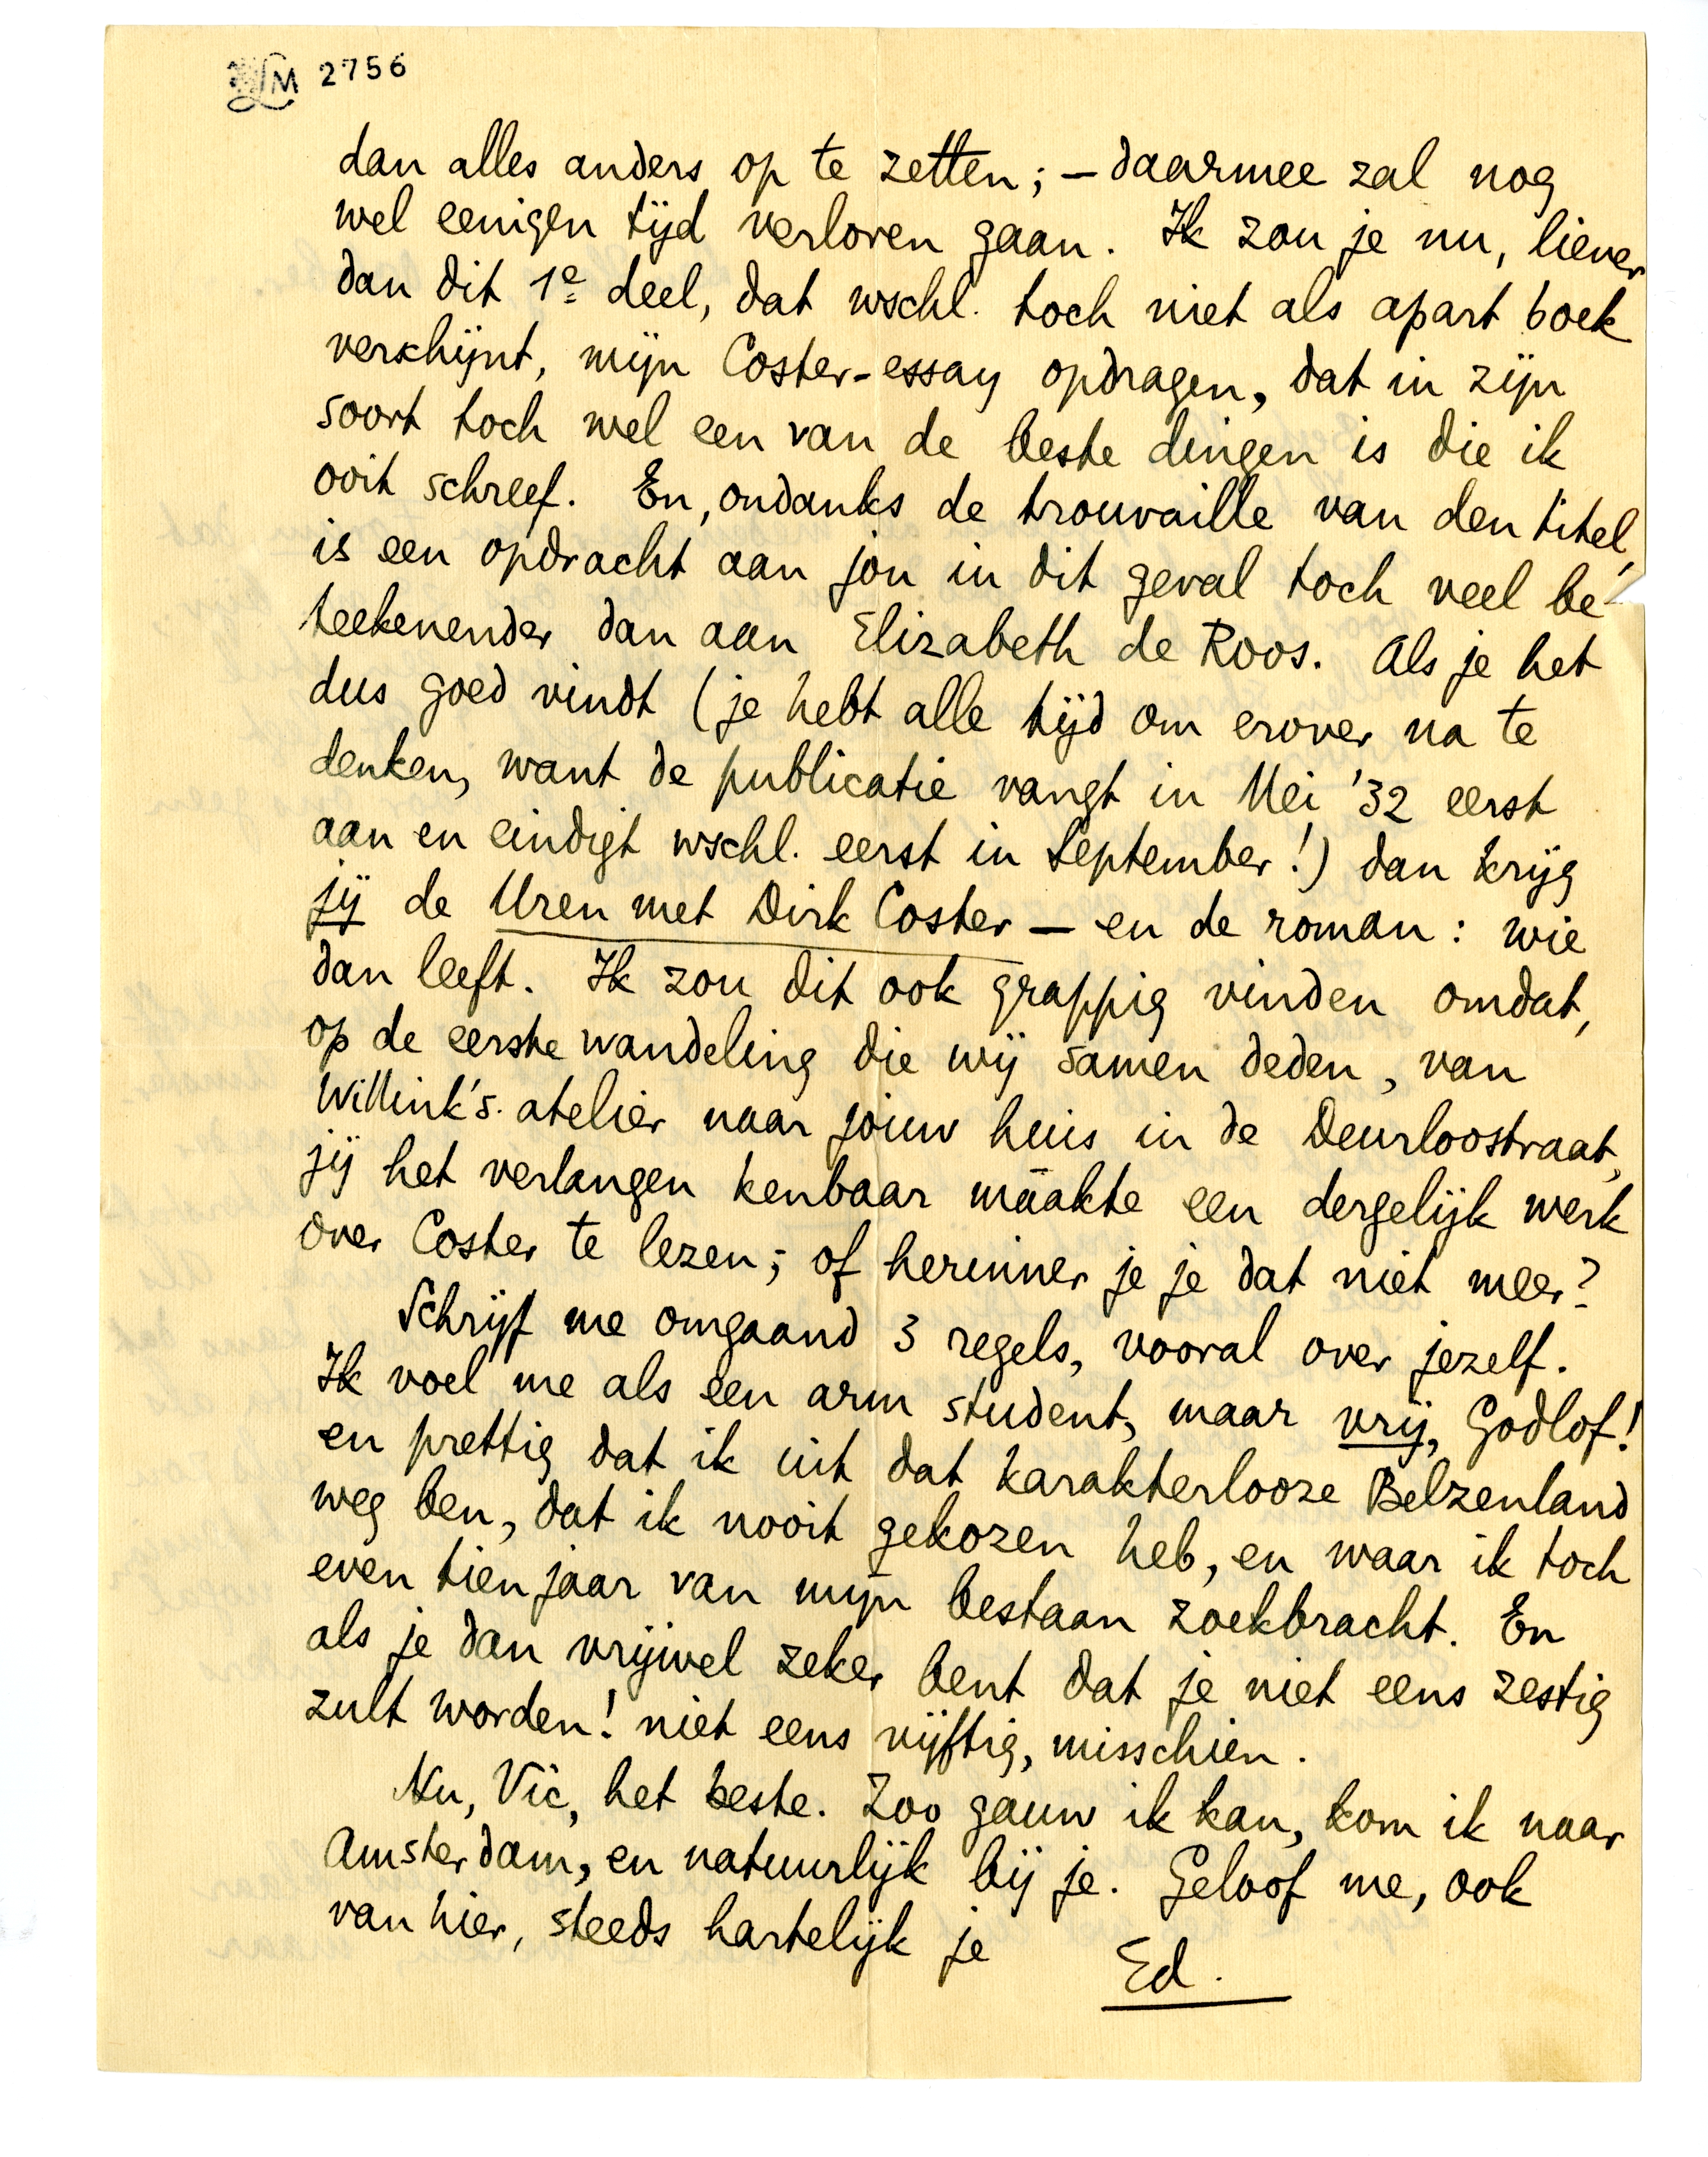 LM 2756
dan alles anders op te zetten; – daarmee zal nog
wel eenigen tijd verloren gaan. Ik zou je nu, liever
dan dit 1e deel, dat wschl. toch niet als apart boek
verschijnt, mijn Coster-essay opdragen, dat in zijn
soort toch wel een van de beste dingen is die ik
ooit schreef. En, ondanks de trouvaille van den titel,
is een opdracht aan jou in dit geval toch veel be-
teekenender dan aan Elizabeth de Roos. Als je het
dus goed vindt (je hebt alle tijd om erover na te
denken, want de publicatie vangt in Mei '32 eerst
aan en eindigt wschl. eerst in September!) dan krijg
jij de Uren met Dirk Coster – en de roman: wie
dan leeft. Ik zou dit ook grappig vinden omdat,
op de eerste wandeling die wij samen deden, van
Willink's atelier naar jouw huis in de Deurloostraat,
jij het verlangen kenbaar maakte een dergelijk werk
over Coster te lezen; of herinner je je dat niet meer?
Schrijf me omgaand 3 regels, vooral over jezelf.
Ik voel me als een arm student, maar vrij, Godlof!
en prettig dat ik uit dat karakterlooze Belzenland
weg ben, dat ik nooit gekozen heb, en waar ik toch
even tien jaar van mijn bestaan zoekbracht. En
als je dan vrijwel zeker bent dat je niet eens zestig
zult worden! niet eens vijftig, misschien.
Nu, Vic, het beste. Zoo gauw ik kan, kom ik naar
Amsterdam, en natuurlijk bij je. Geloof me, ook
van hier, steeds hartelijk je
Ed.